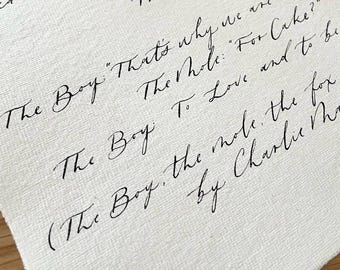 The Boy: "That's why we are
The Mole: "For Cake?"
The Boy: To Love and to be
(The Boy, the mole, the fox
by Charlie Ma